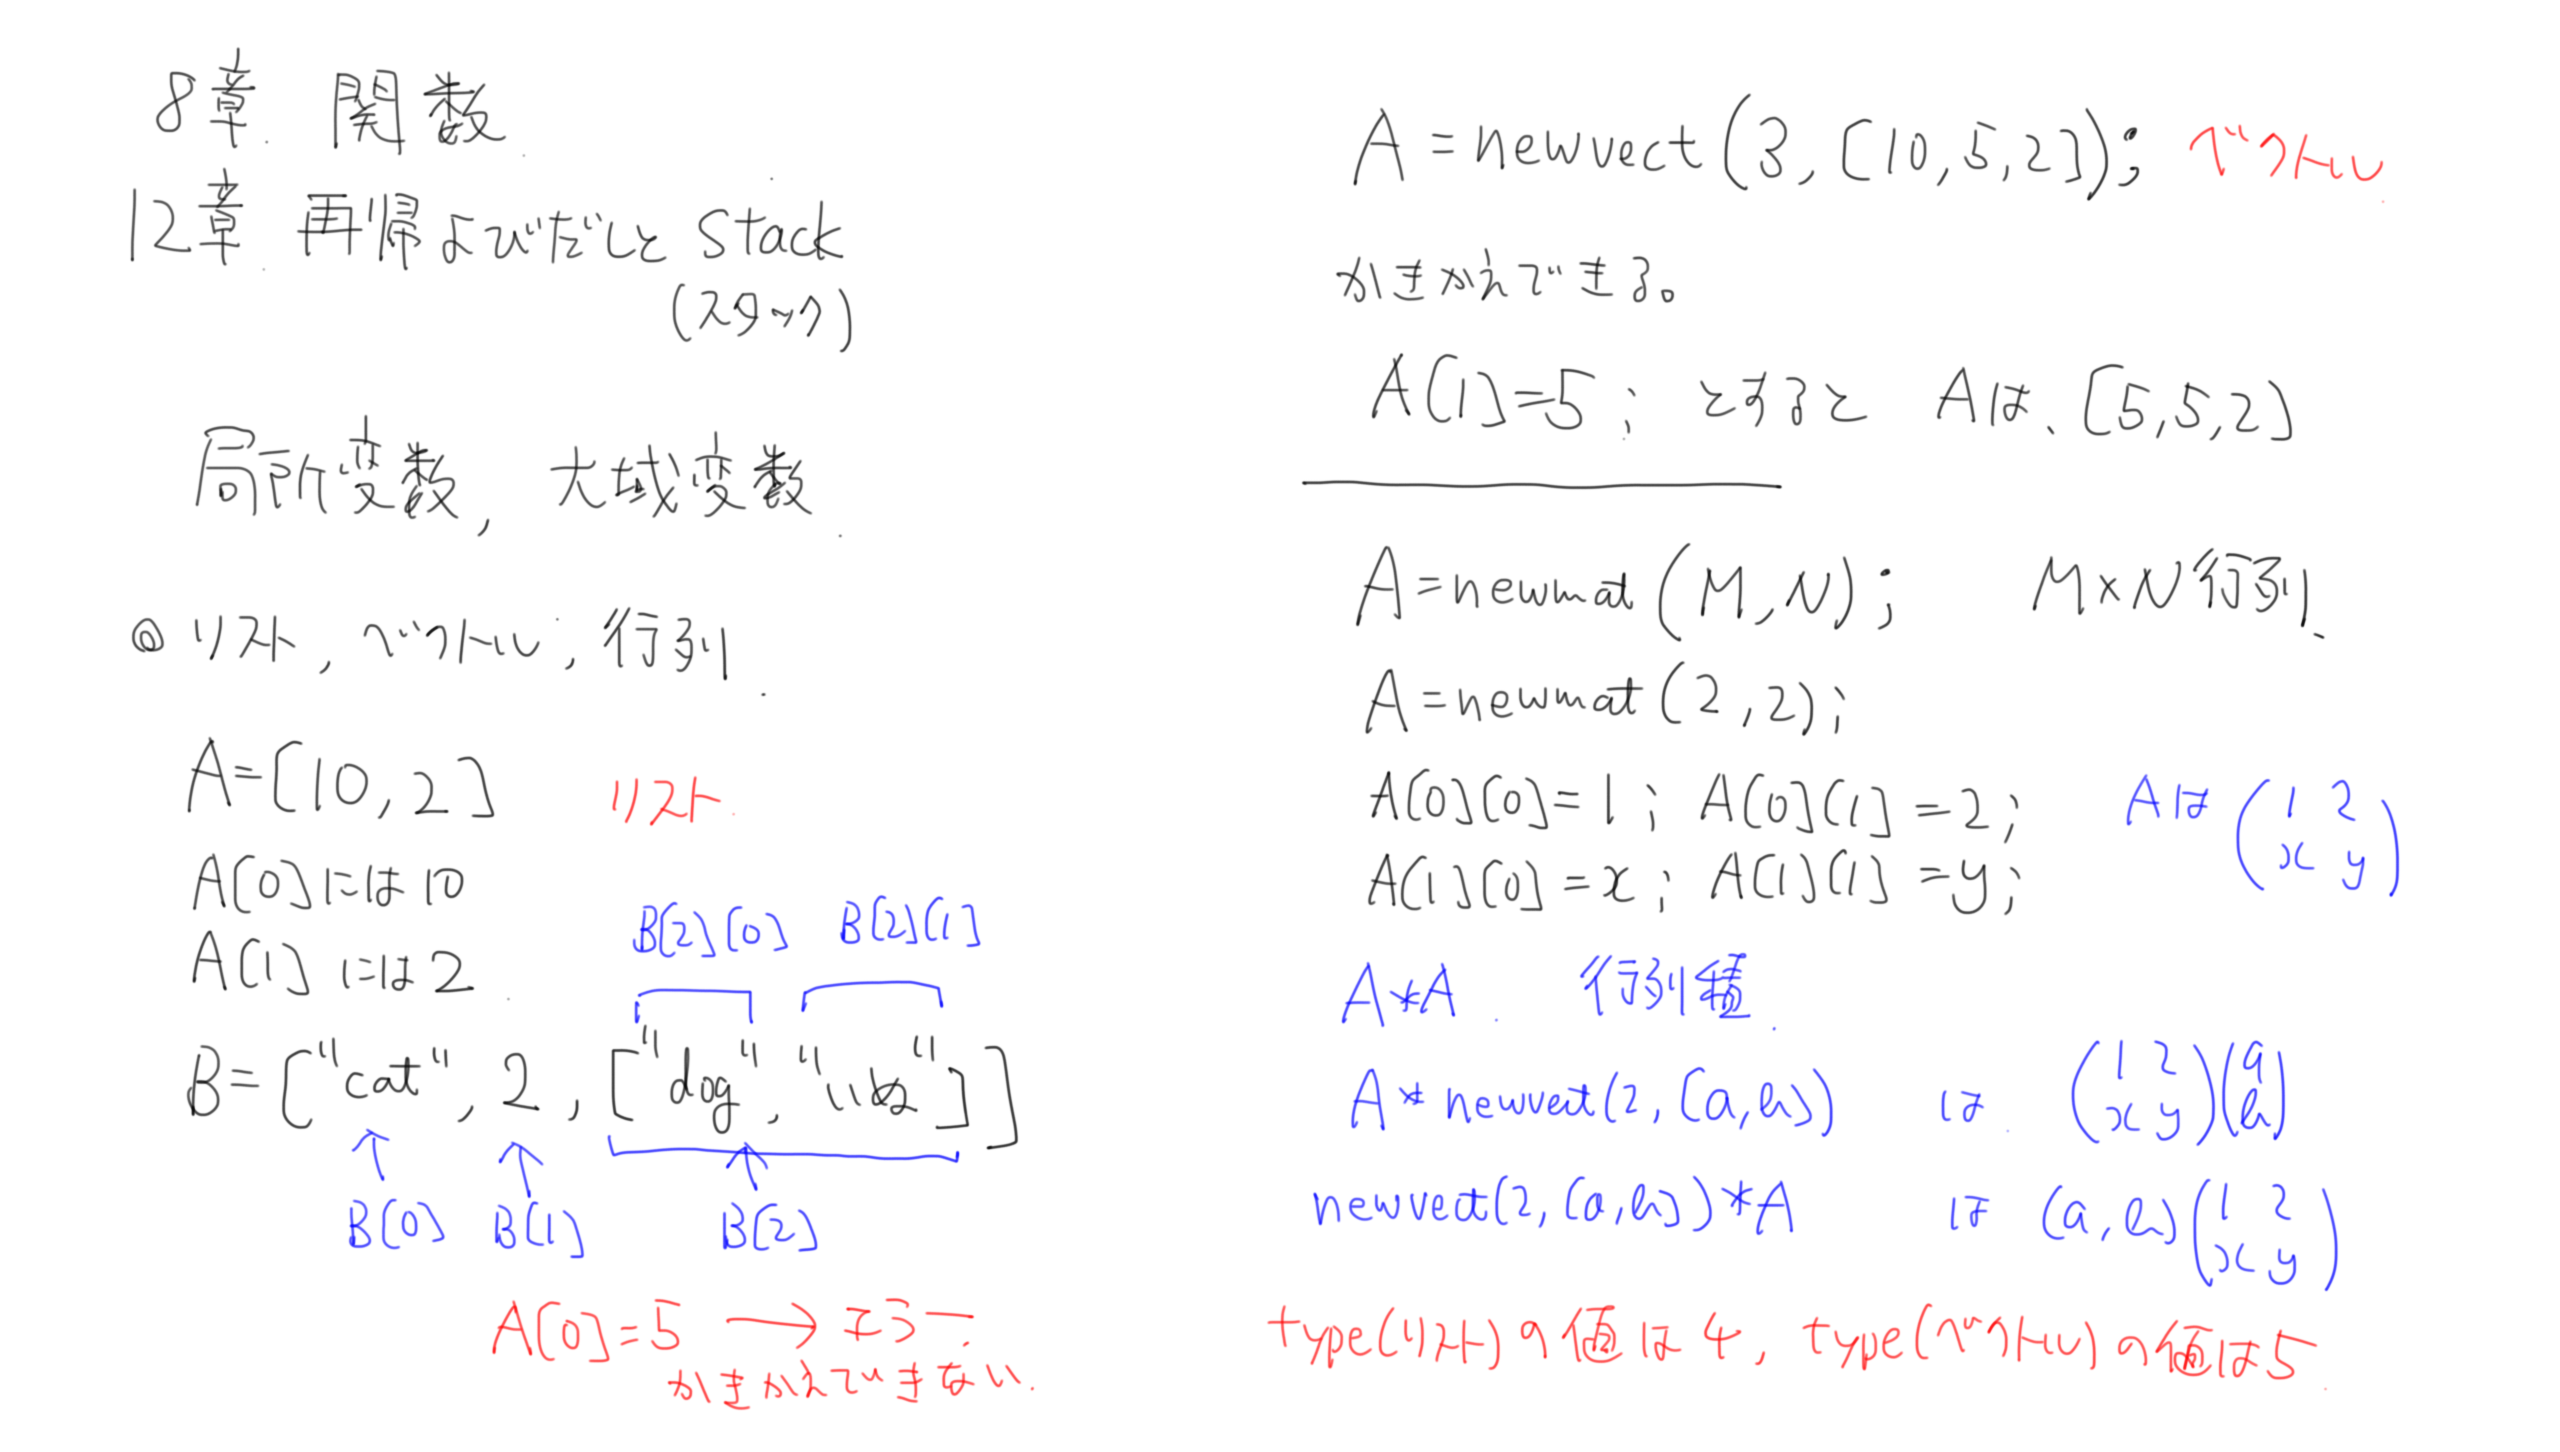 8章. 関数.
12章. 再帰よびだしと stack
(スタック)
局所変数, 大域変数.
◎ リスト, ベクトル, 行列.
A=[10,2] リスト.
A[0]には10
A[1]には2.
B[2][0] B[2][1]
B=["cat", 2, ["dog", "いぬ"]]
B[0] B[1] B[2]
A[0]=5 → エラー.
かきかえできない.
A=newvect(3,[10,5,2]); ベクトル.
かきかえできる。
A[1]=5; とすると Aは、[5,5,2]
A=newmat(M,N); M×N行列.
A=newmat(2,2);
A[0][0]=1; A[0][1]=2; Aは (1 2
A[1][0]=x; A[1][1]=y; x y)
A*A. 行列積.
A*newvect(2,[a,b]) は. (1 2 x y)(a b)
newvect(2,[a,b])*A は (a,b)(1 2 x y)
type(リスト)の値は4, type(ベクトル)の値は5.